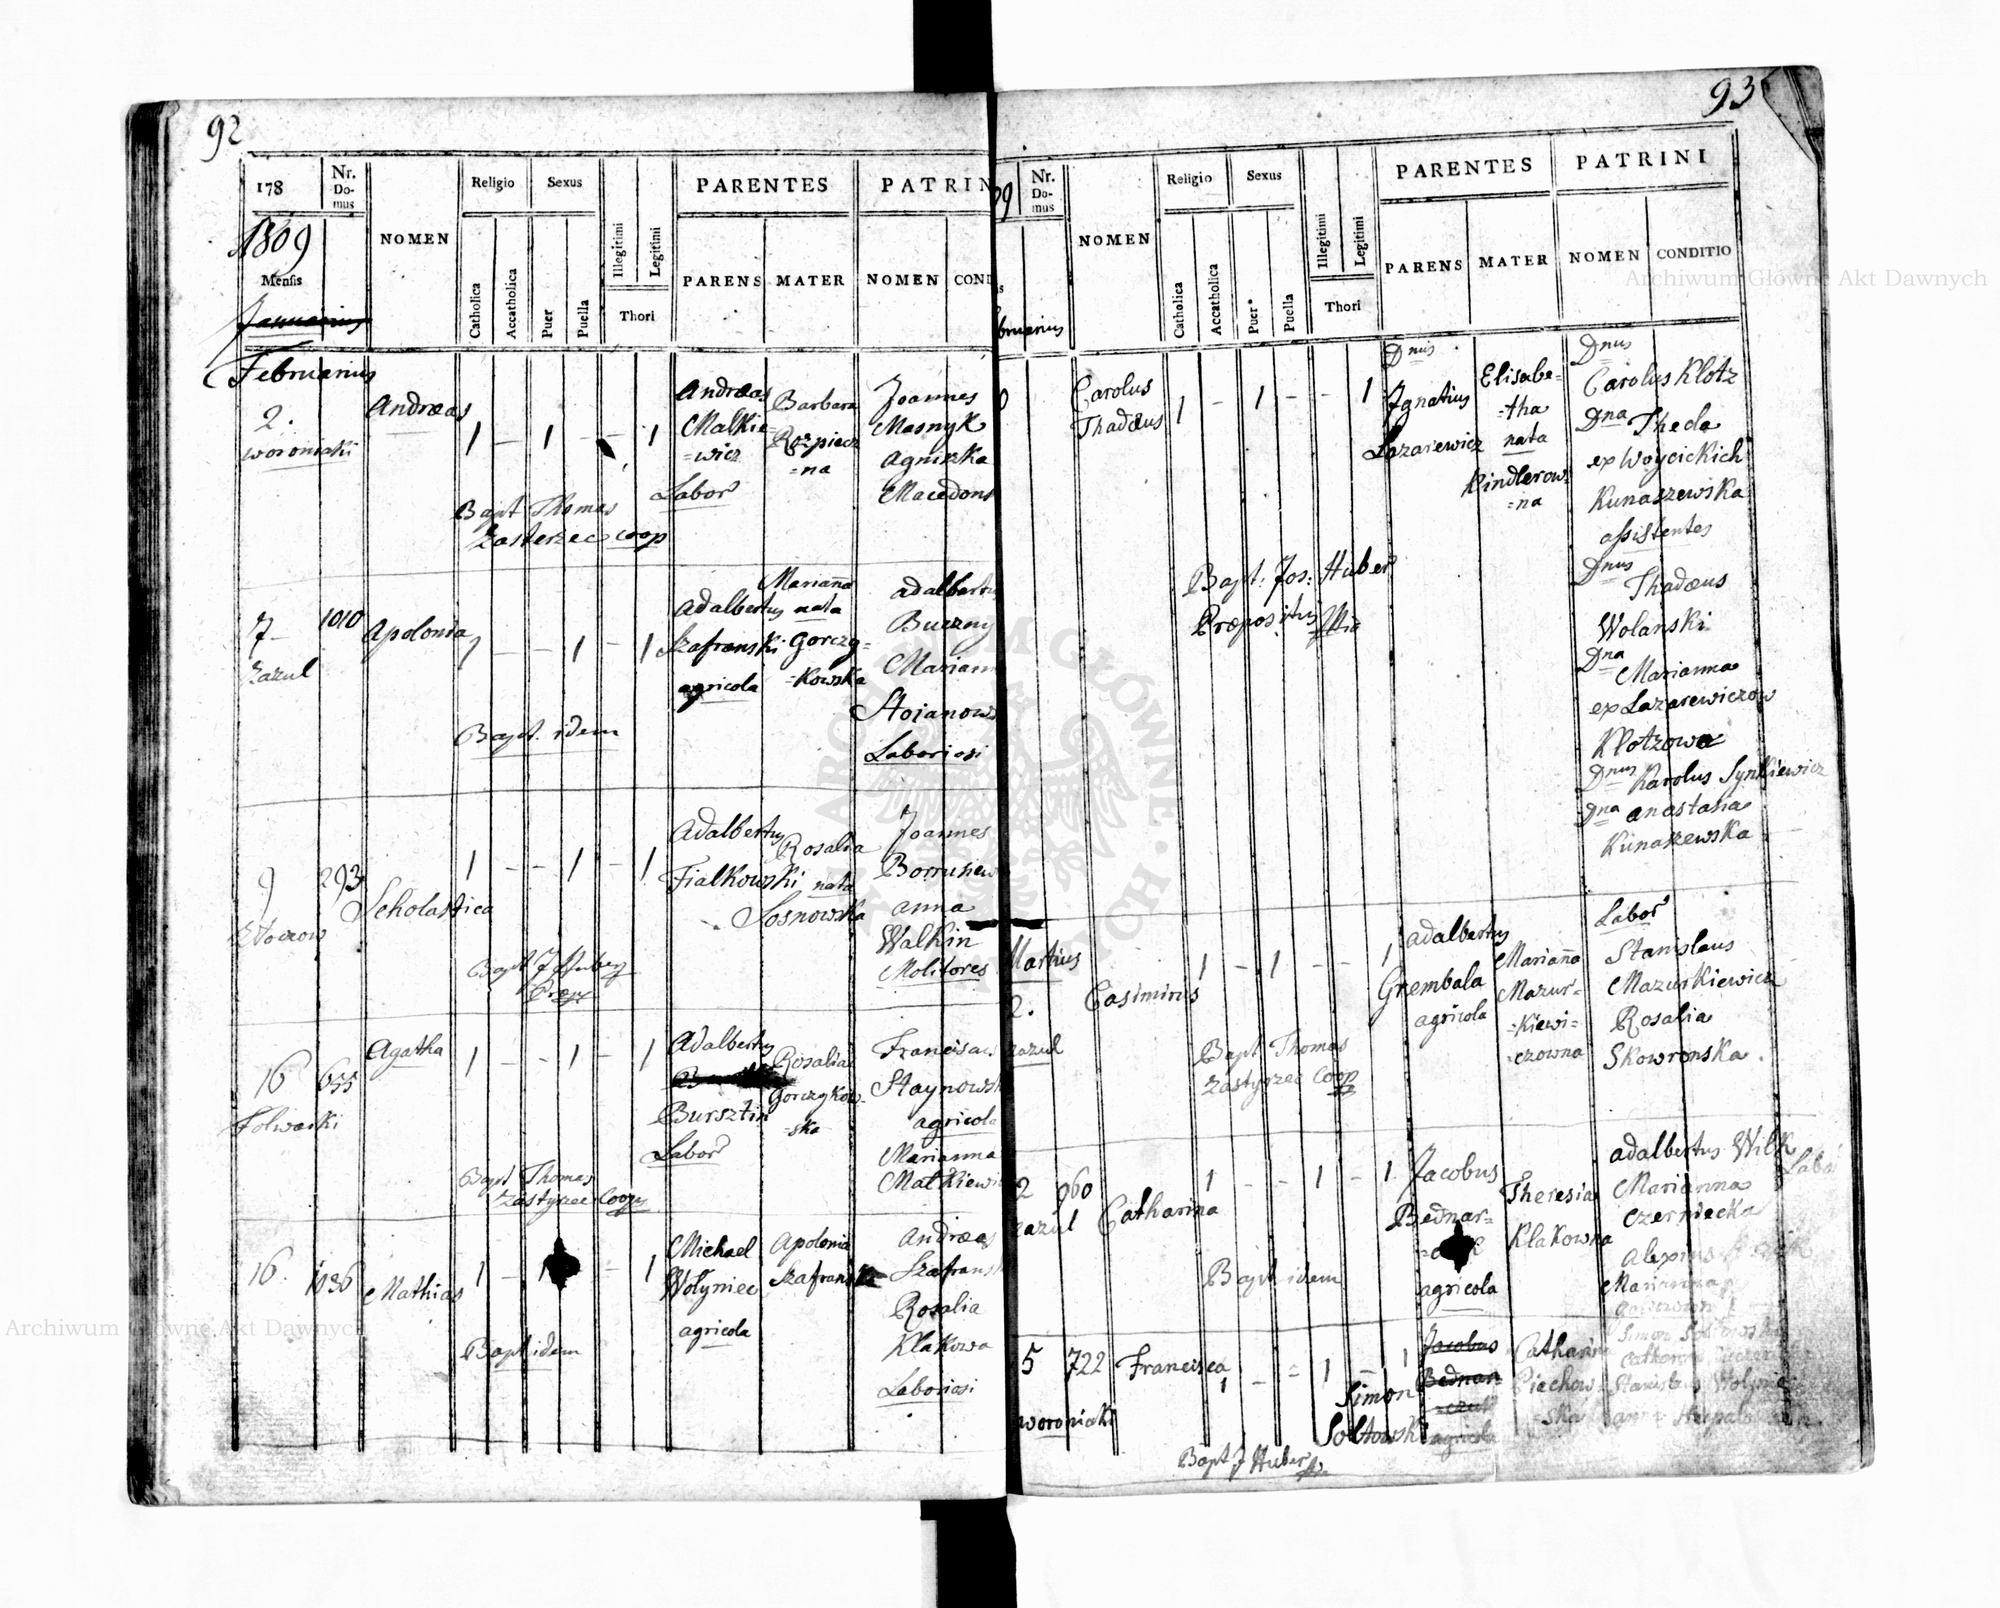 92
178
Nr. Do- mus
NOMEN
Religio
Sexus
PARENTES
PATRIN
1809
Mensis
Catholica
Accatholica
Puer
Puella
Illegitimi
Legitimi
Thori
PARENS
MATER
NOMEN
COND
Januarius
Februarius
2.
woroniaki
Andreas
1 — 1 — 1
Andreas
Malkie-
=wicz
Labor
Barbara
Rozpiecz
=na
Joannes
Masnyk
Agniszka
Macedons
Bapt Thomas
Zasterzec coop
7
1010
Zazul
Apolonia
1 — — 1 — 1
Adalbertus
Szafranski
agricola
Marianna
nata
Gorczy=
=kowska
Adalbertu
Buczny
Mariann
Stoianows
Laboriosi
Bapt. idem
9
293
Złoczow
Scholastica
1 — — 1 — 1
Adalbertus
Fialkowski
Rosalia
nata
Sosnowska
Joannes
Borrusiew
anna
Walkin
Molitores
Bapt J Huber
Præp
16
655
Folwarki
Agatha
1 — — 1 — 1
Adalbertus
Bursztin
Labor
Rosalia
Gorczykow-
-ska
Franciscus
Staynowsk
agricola
Marianna
Malkiewi
Bapt Thomas
Zastyrzec Coop
16.
1036
Mathias
1 — 1 — 1
Michael
Wołyniec
agricola
Apolonia
Szafranska
Andreas
Szafransk
Rosalia
Klakowa
Laboriosi
Bapt idem
93
09
Nr. Do- mus
NOMEN
Religio
Sexus
PARENTES
PATRINI
Catholica
Accatholica
Puer
Puella
Illegitimi
Legitimi
Thori
PARENS
MATER
NOMEN
CONDITIO
bruarius
Carolus
Thadæus
1 — 1 — — 1
Dnus
Ignatius
Lazarewicz
Elisabe=
=tha
nata
Kindlerow
=na
Dnus
Carolus Klotz
Dna Thecla
ex Woycickich
Kunaszewska
assistentes
Dnus
Thadæus
Wolanski
Dna
Marianna
ex Lazarewiczow
Klotzowa
Dnus Karolus Synkiewicz
Dna anastasia
Kunaszewska
Bapt: Jos: Huber
Præpositus
Martius
2.
zazul
Casimirus
1 — 1 — — 1
Adalbertus
Grembala
agricola
Marianna
Mazur=
=kiewi=
=czowna
Labor
Stanislaus
Mazurkiewicz
Rosalia
Skowronska.
Bapt Thomas
Zastyrzec Coop
2
960
zazul
Catharina
1 — — 1 — 1
Jacobus
Bednar=
agricola
Theresia
Klakowna
adalbertus Wilk
Labor
Marianna
Czerniecka
Alexius
Marianna
Bapt idem
5
722
woroniaki
Francisca
1 — = 1 — 1
Jacobus
Bednar
=czuk
agricola
Simon
Soltowski
Catharina
Piechow-
-ska
Simon Soltowski
Catharina
Stanislaus Wolyniec
anna
Bapt J Huber
Archiwum Główne Akt Dawnych
Archiwum Główne Akt Dawnych
ARCHIWUM GŁÓWNE